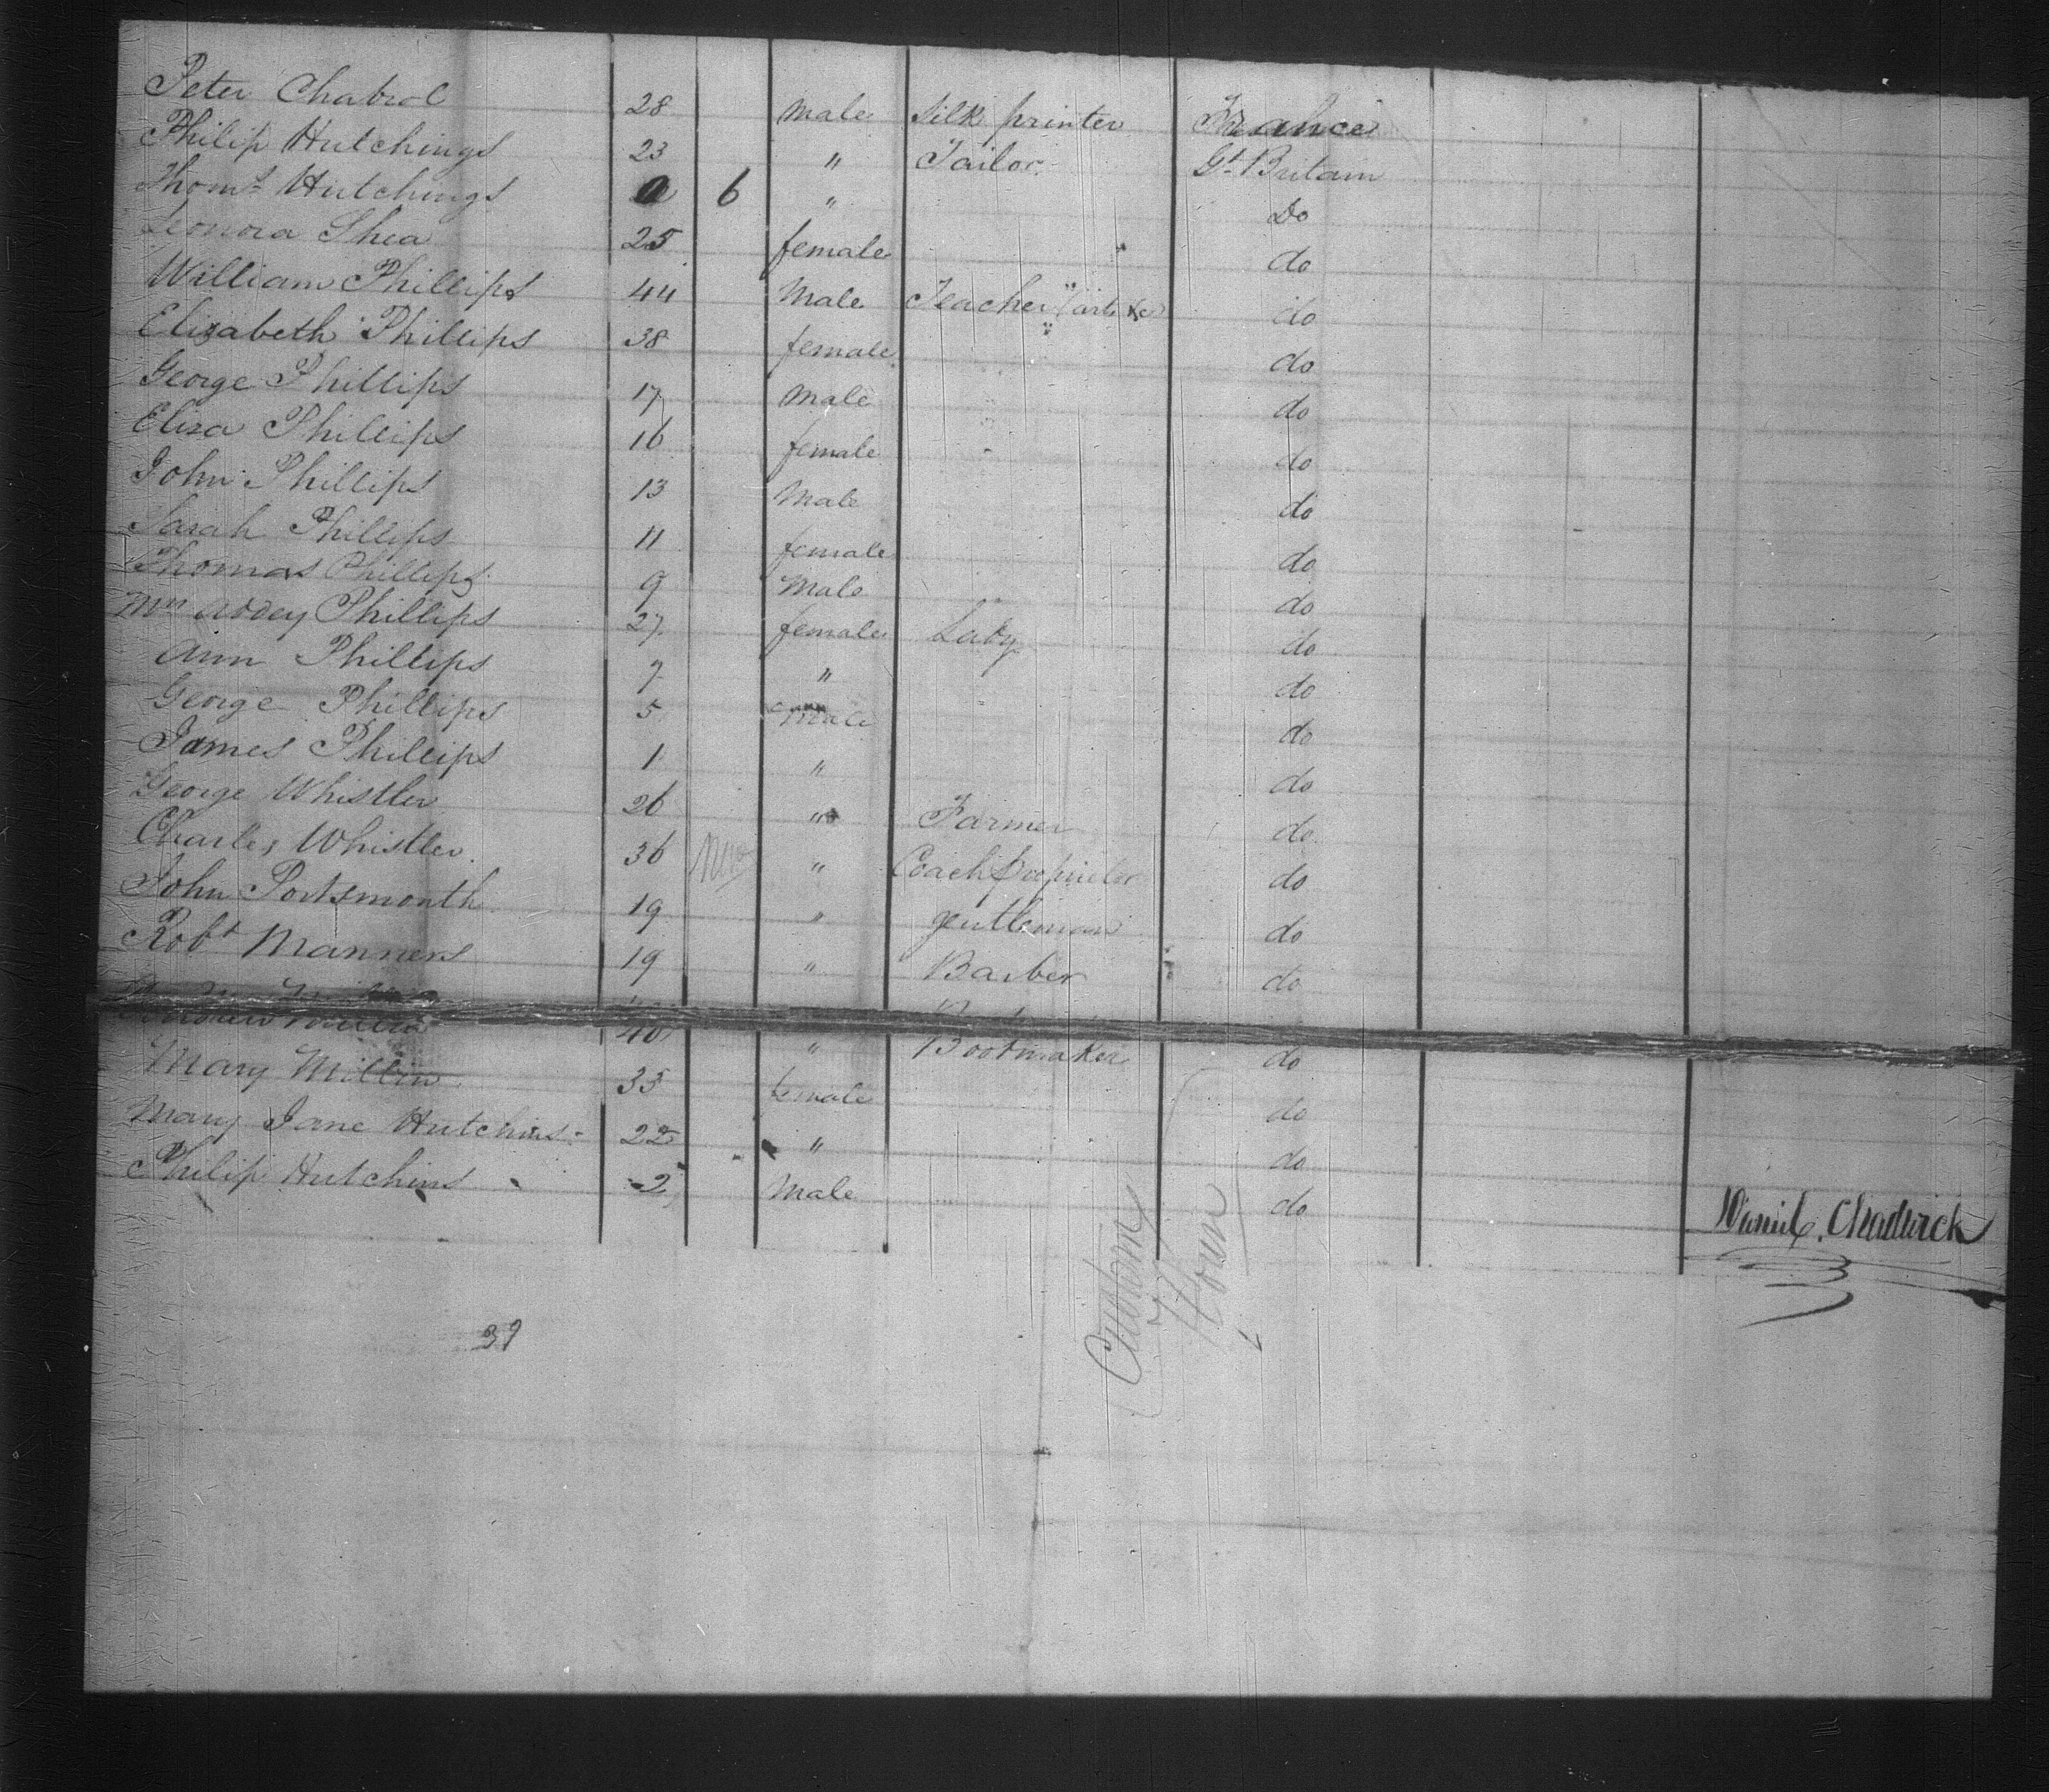 Peter Chabrol 28 Male Silk printer France
Philip Hutchings 23 " Tailor Gt Britain
Thoms Hutchings 6 " Do
Leonora Shea 25 female do
William Phillips 44 Male Teacher do
Elizabeth Phillips 38 female do
George Phillips 17 Male do
Eliza Phillips 16 female do
John Phillips 13 Male do
Sarah Phillips 11 female do
Thomas Phillips 9 Male do
Phillips 27 female Lady do
Ann Phillips 7 " do
George Phillips 5 Male do
James Phillips 1 " do
George Whistler 26 " Farmer do
Charles Whistler 36 " Coach Proprietor do
John Portsmouth 19 " gentleman do
Robt Manners 19 " Barber do
40 " Bootmaker do
Mary Millin 35 female do
Mary Jane Hutchins 22 " do
Philip Hutchins 2 Male do
Daniel Chadwick
39